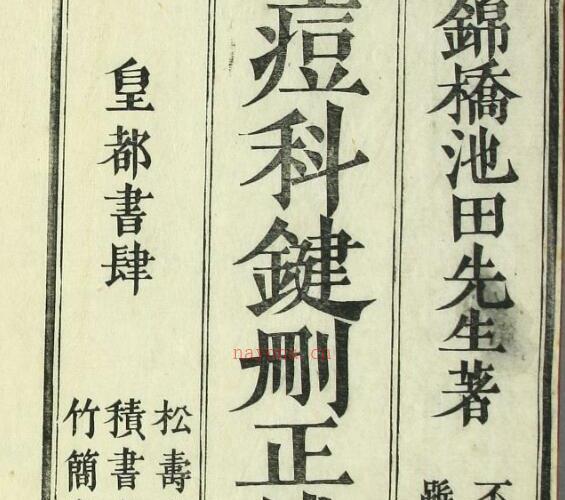 錦橋池田先生著
痘科鍵刪正
皇都書肆
松壽
積書
竹簡